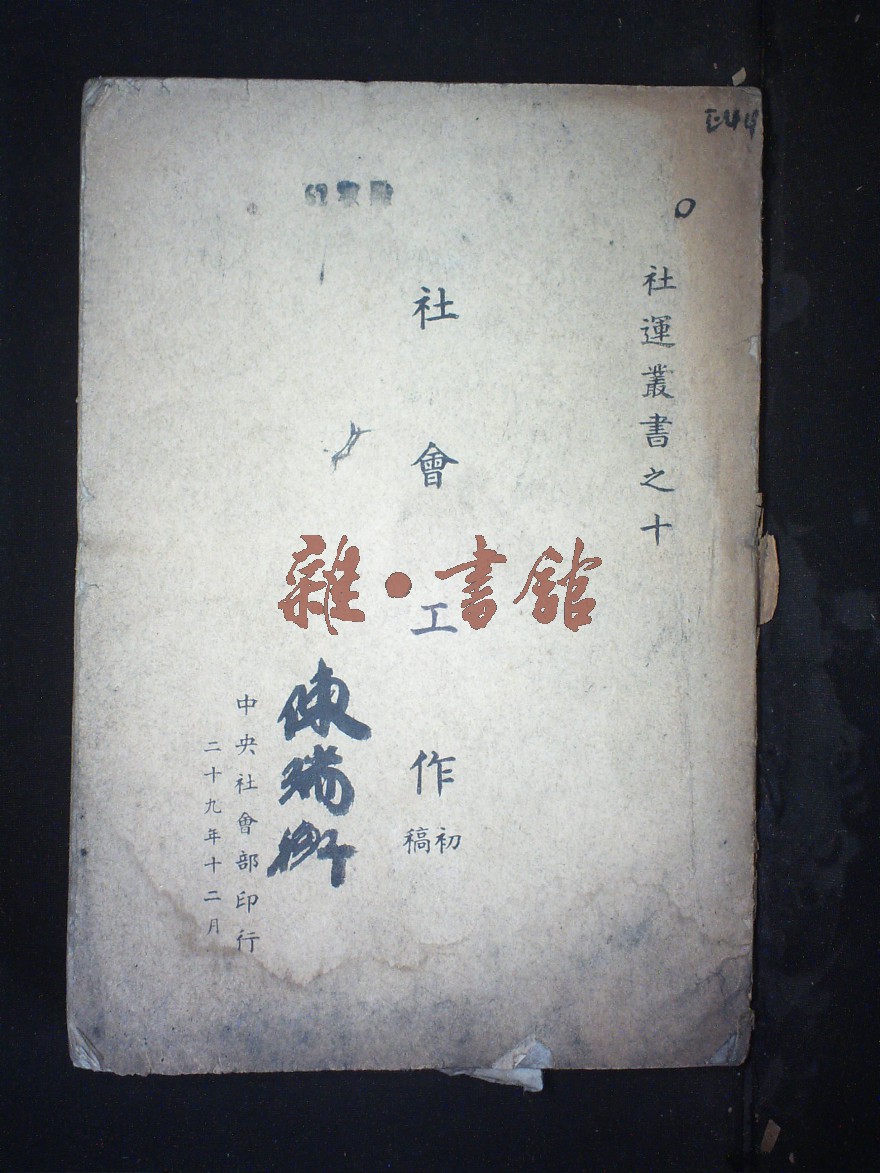 社運叢書之十
社會工作
初稿
雜·書館
陳瑞卿
中央社會部印行
二十九年十二月